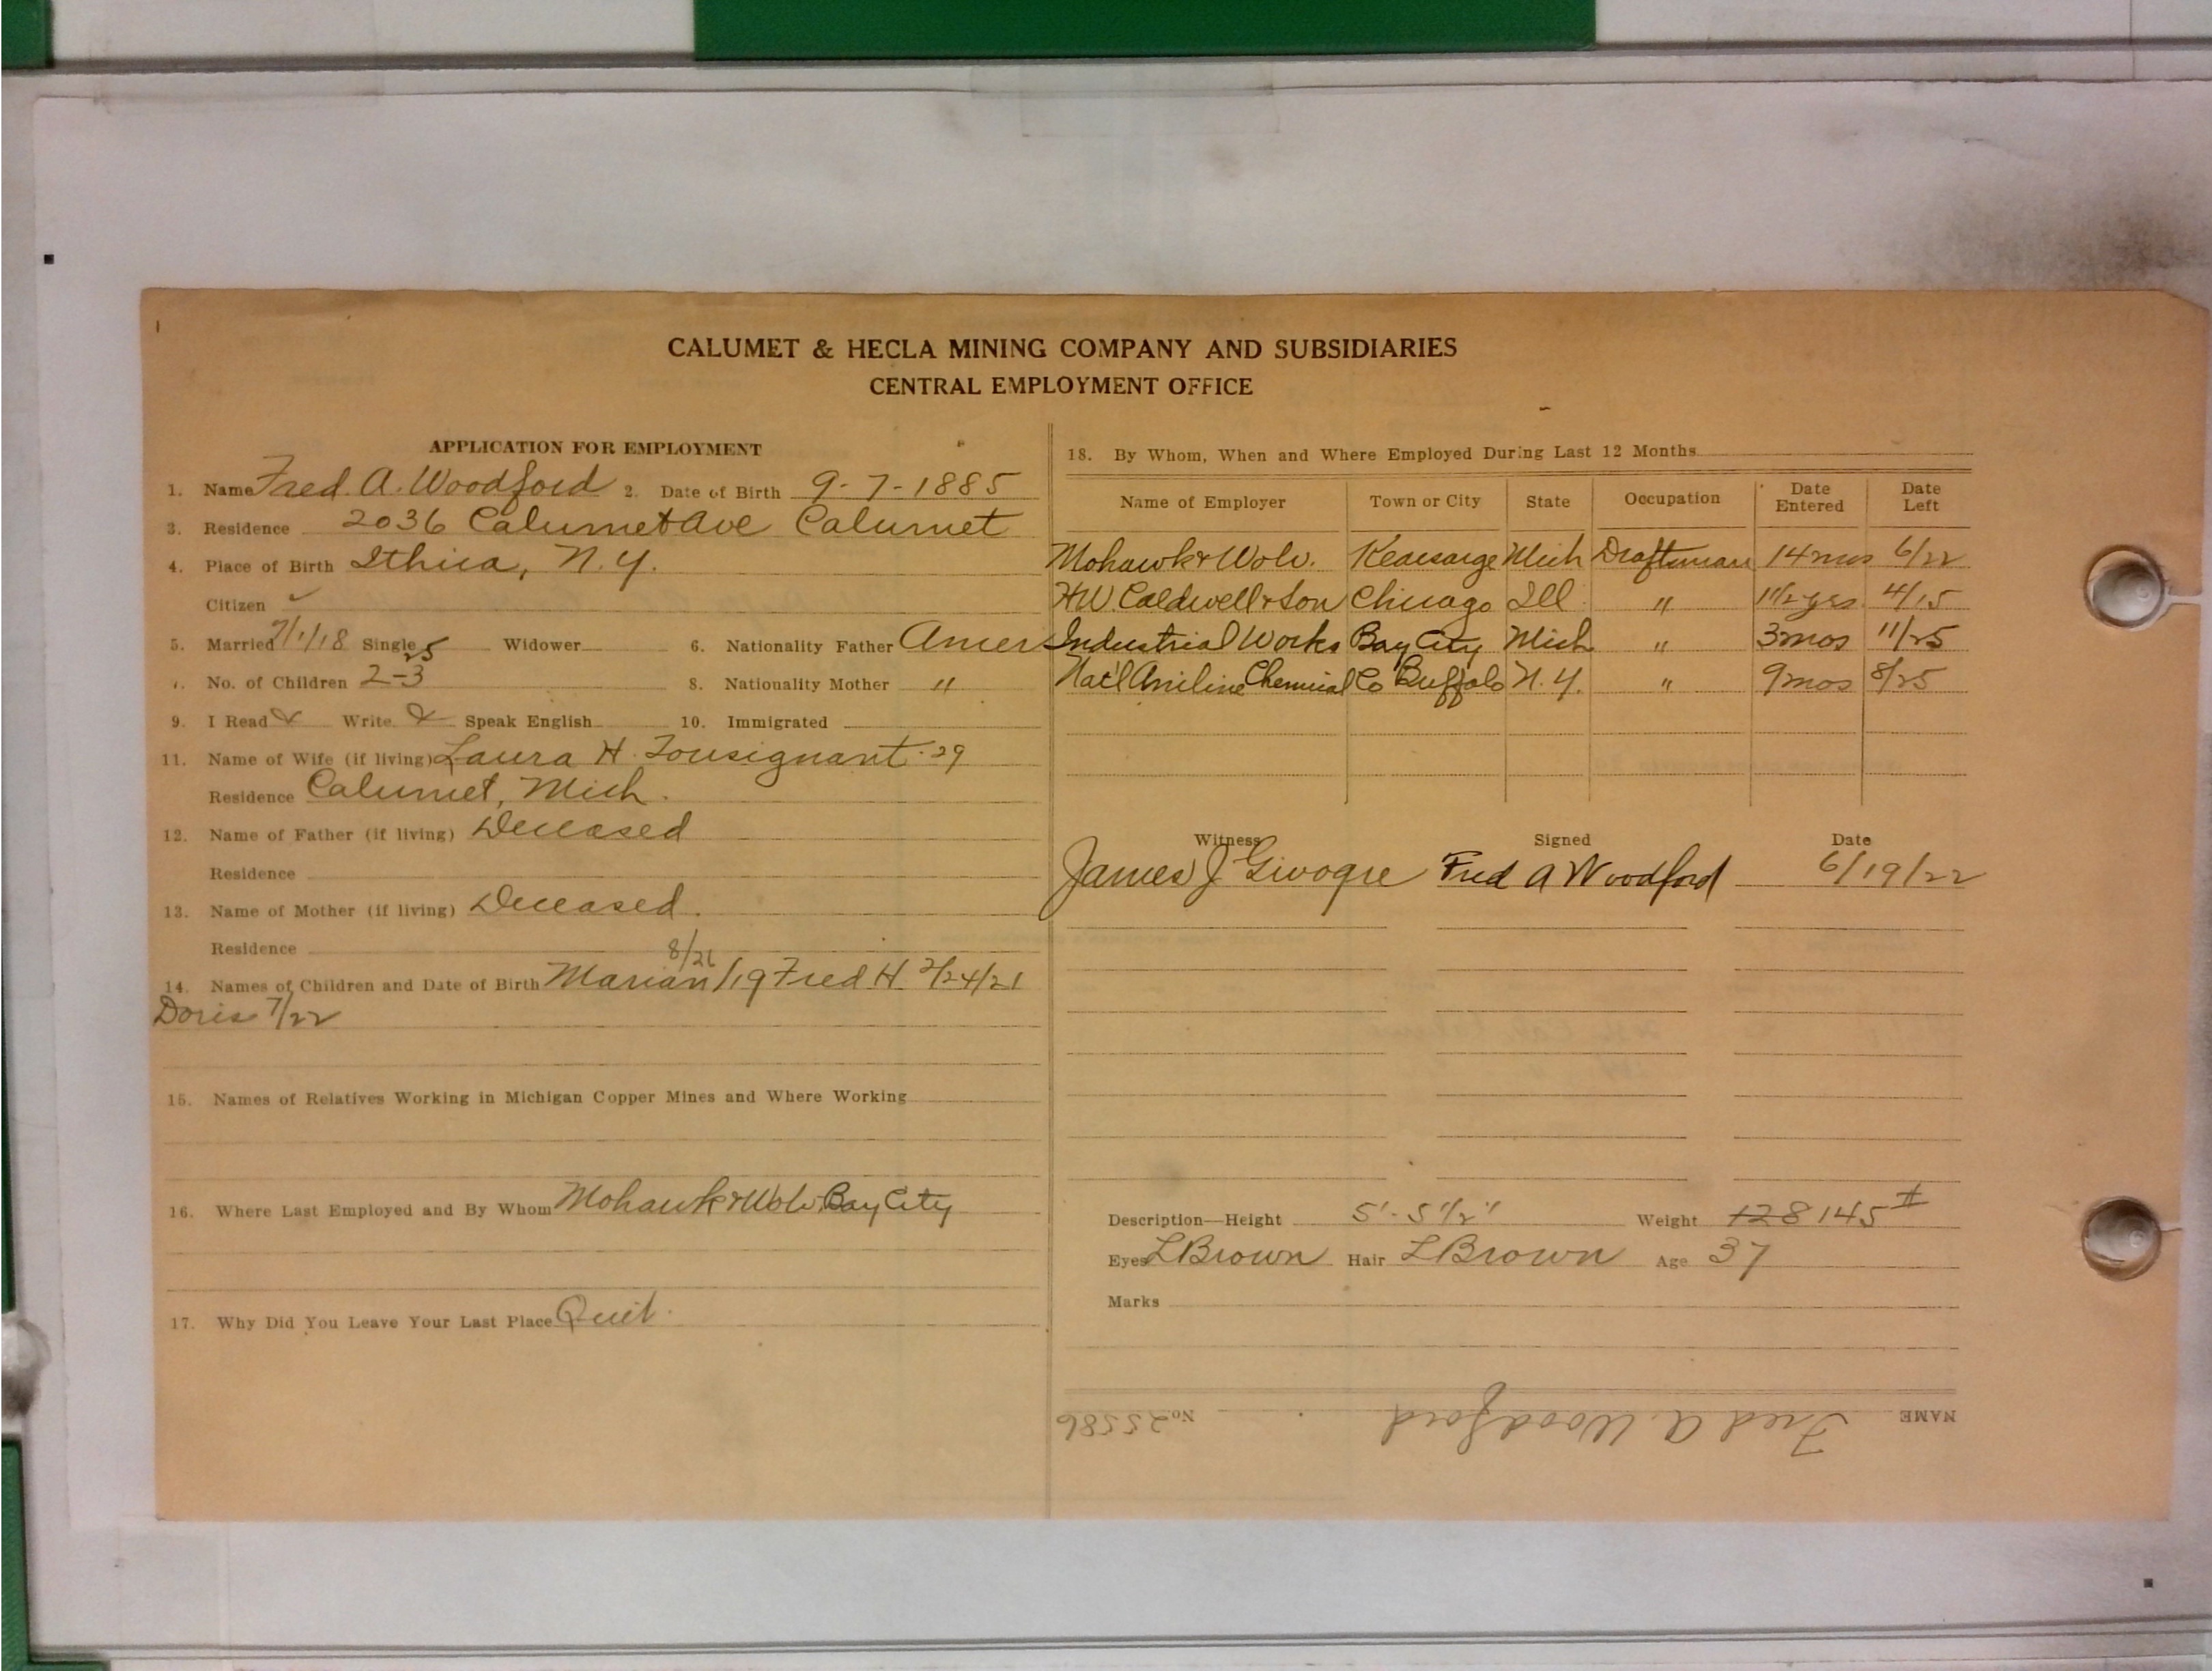 CALUMET & HECLA MINING COMPANY AND SUBSIDIARIES
CENTRAL EMPLOYMENT OFFICE
APPLICATION FOR EMPLOYMENT
1. Name Fred. A. Woodford 2. Date of Birth 9-7-1885
3. Residence 2036 Calumet Ave Calumet
4. Place of Birth Ithica, N.Y.
Citizen ✓
5. Married 7/1/18 Single Widower 6. Nationality Father Amer
7. No. of Children 2-3 5 8. Nationality Mother "
9. I Read Write Speak English 10. Immigrated
11. Name of Wife (if living) Laura H. Tousignant-29
Residence Calumet, Mich.
12. Name of Father (if living) Deceased
Residence
13. Name of Mother (if living) Deceased.
Residence
14. Names of Children and Date of Birth Marian 8/26/19 Fred H. 2/24/21
Doris 7/22
15. Names of Relatives Working in Michigan Copper Mines and Where Working
16. Where Last Employed and By Whom Mohawk & Wolv. Bay City
17. Why Did You Leave Your Last Place Quit.
18. By Whom, When and Where Employed During Last 12 Months
Name of Employer Town or City State Occupation Date Entered Date Left
Mohawk & Wolv. Kearsarge Mich Draftsman 14 mos 6/22
H.W. Caldwell & Son Chicago Ill " 1 1/2 yrs. 4/15
Industrial Works Bay City Mich " 3 mos 11/25
Nat'l Aniline Chemical Co Buffalo N.Y. " 9 mos 8/25
Witness Signed Date
James J Fred A Woodford 6/19/22
Description—Height 5'-5 1/2" Weight 128 145#
Eyes L Brown Hair L Brown Age 37
Marks
NAME Fred A Woodford No. 25586